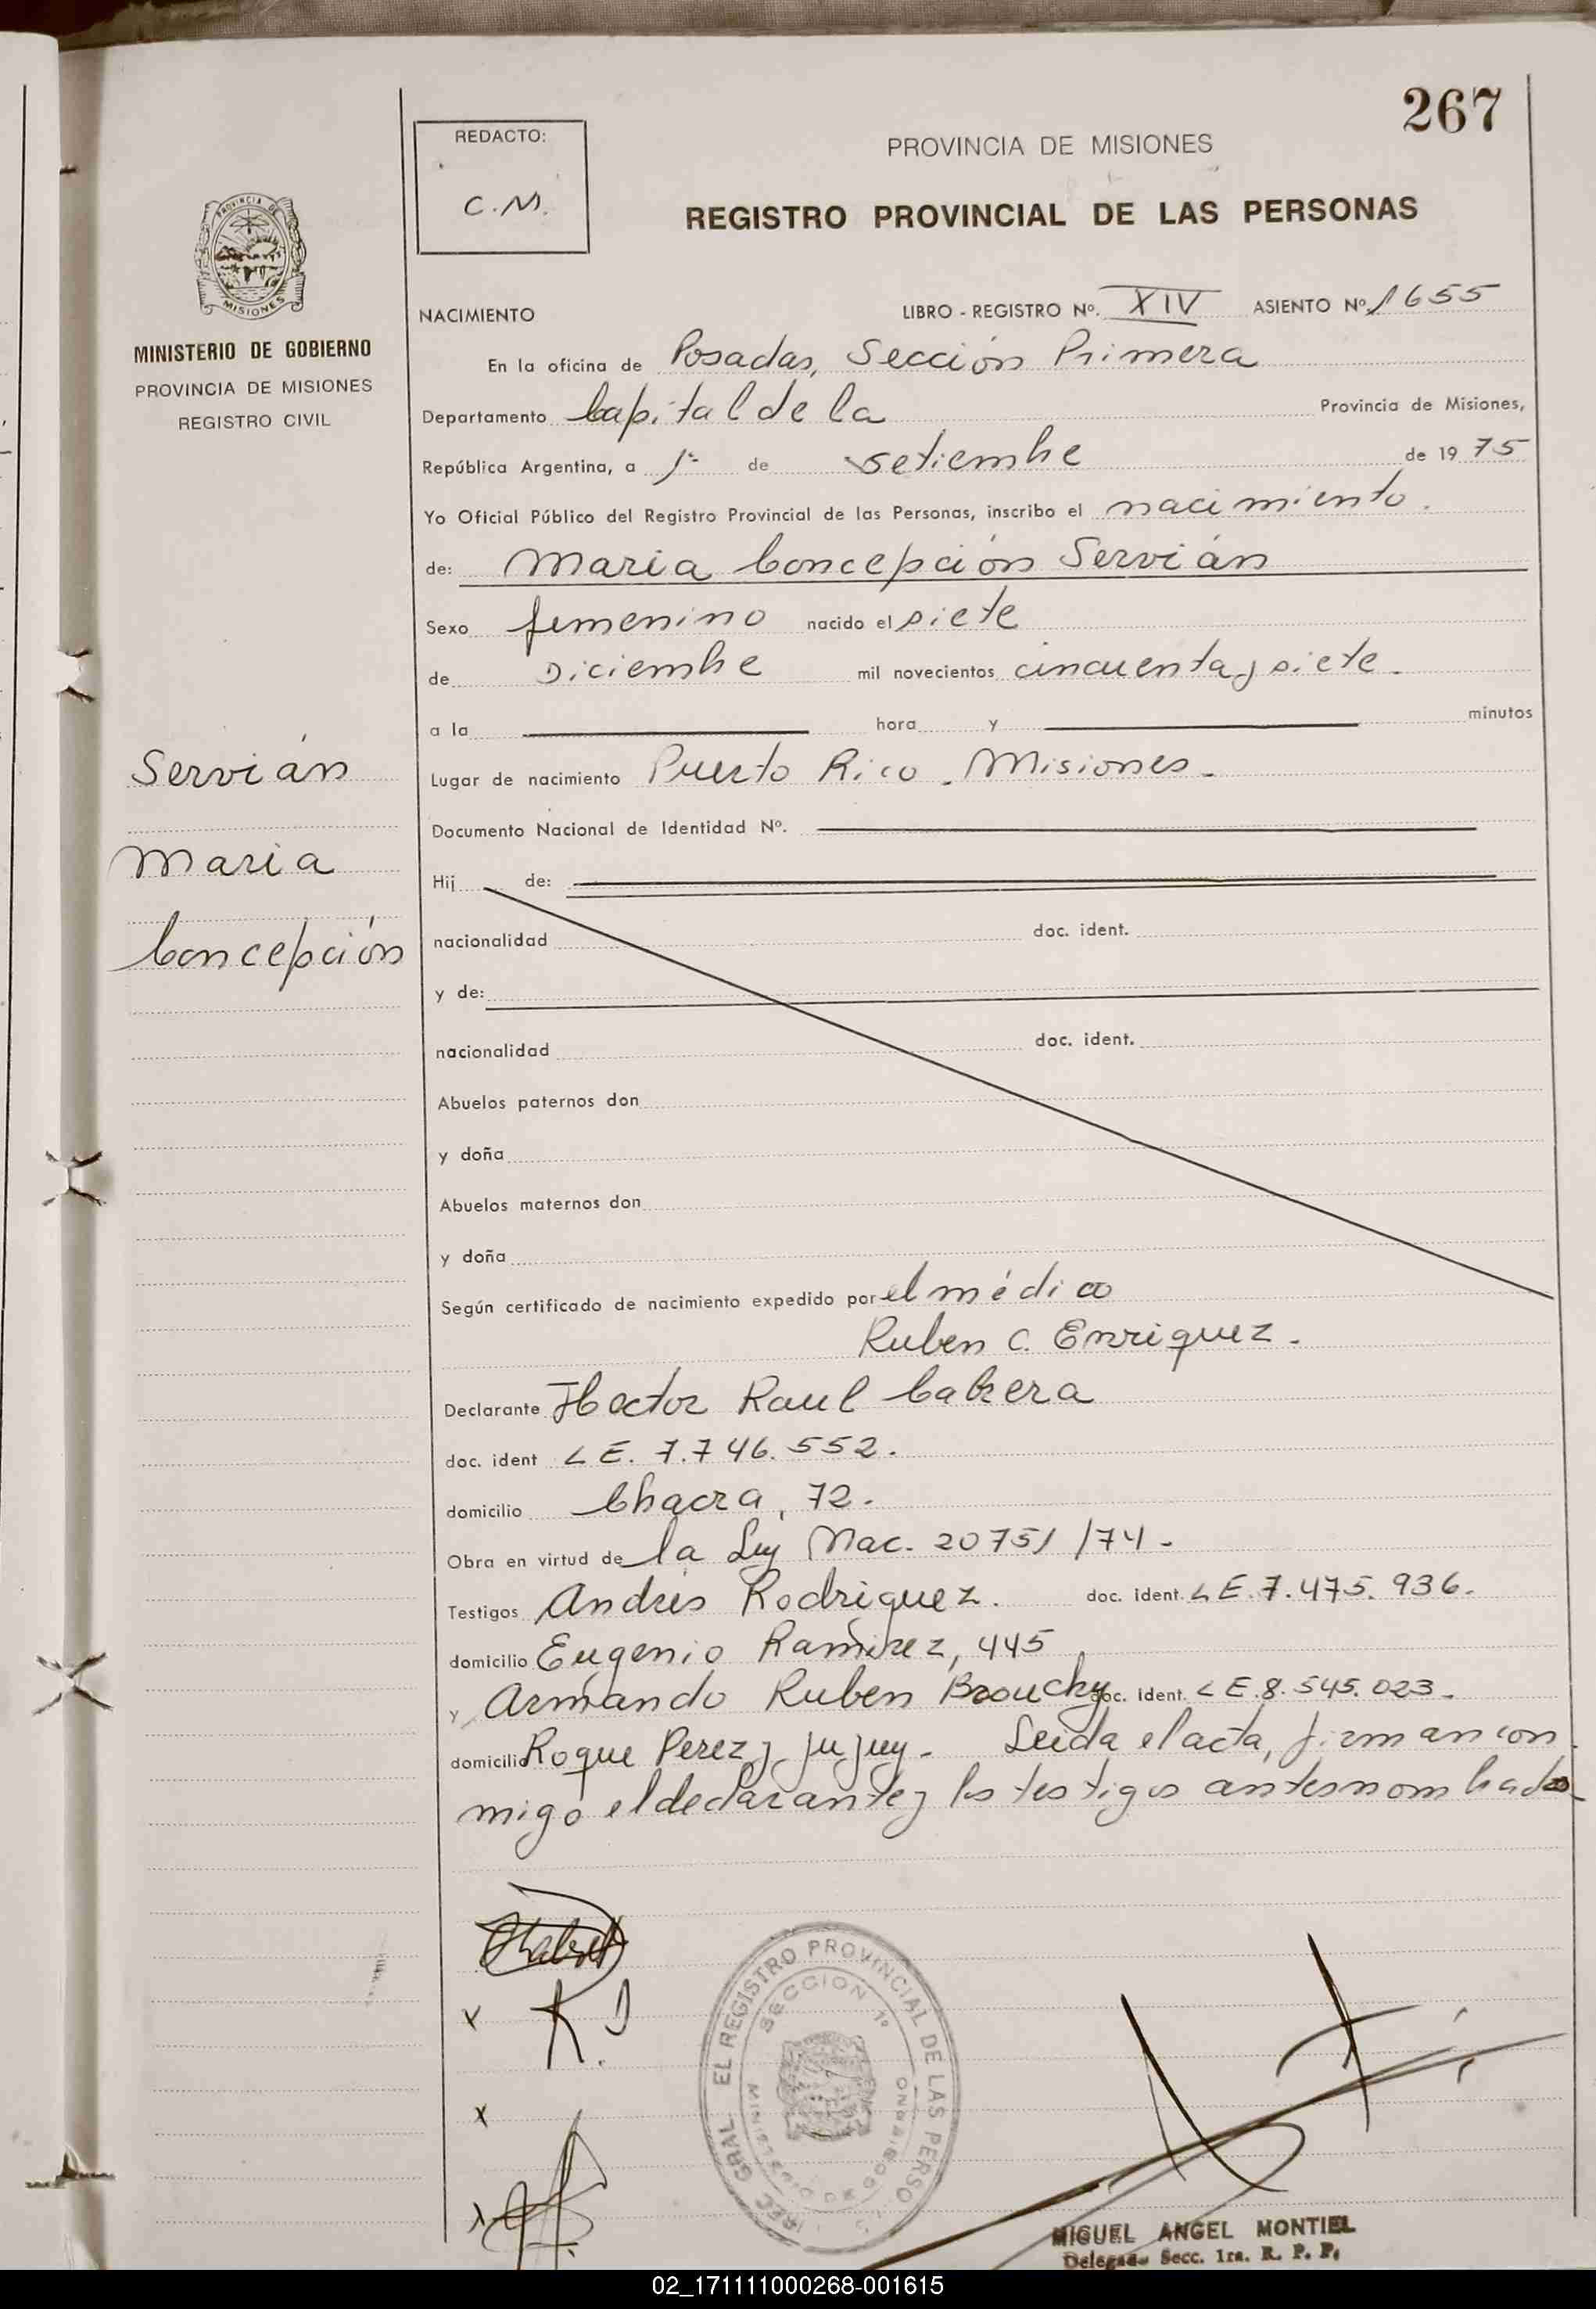 267
REDACTO:
C.M.
PROVINCIA DE MISIONES
REGISTRO PROVINCIAL DE LAS PERSONAS
PROVINCIA DE
MISIONES
MINISTERIO DE GOBIERNO
PROVINCIA DE MISIONES
REGISTRO CIVIL
NACIMIENTO LIBRO - REGISTRO Nº. XIV ASIENTO Nº 1655
En la oficina de Posadas, Sección Primera
Departamento Capital de la Provincia de Misiones,
República Argentina, a 1º de setiembre de 1975
Yo Oficial Público del Registro Provincial de las Personas, inscribo el nacimiento.
de: Maria Concepción Servián
Sexo femenino nacido el siete
de Diciembre mil novecientos cincuenta y siete.
a la hora y minutos
Servián
Maria
Concepción
Lugar de nacimiento Puerto Rico. Misiones.
Documento Nacional de Identidad Nº.
Hij de:
nacionalidad doc. ident.
y de:
nacionalidad doc. ident.
Abuelos paternos don
y doña
Abuelos maternos don
y doña
Según certificado de nacimiento expedido por el médico
Ruben C. Enriquez.
Declarante Hector Raul Cabrera
doc. ident LE. 7.746.552.
domicilio Chacra, 72.
Obra en virtud de la Ley Nac. 20751/74.
Testigos Andrés Rodriguez. doc. ident. LE.7.475.936.
domicilio Eugenio Ramirez, 445
y Armando Ruben Brouchy doc. ident. LE.8.545.023.
domicilio Roque Perez y Jujuy. Leida el acta, firman con
migo el declarante y los testigos antes nombrados
EL REGISTRO PROVINCIAL DE LAS PERSO
SECCION 1º
MIGUEL ANGEL MONTIEL
Delegado Secc. 1ra. R. P. P.
02_171111000268-001615